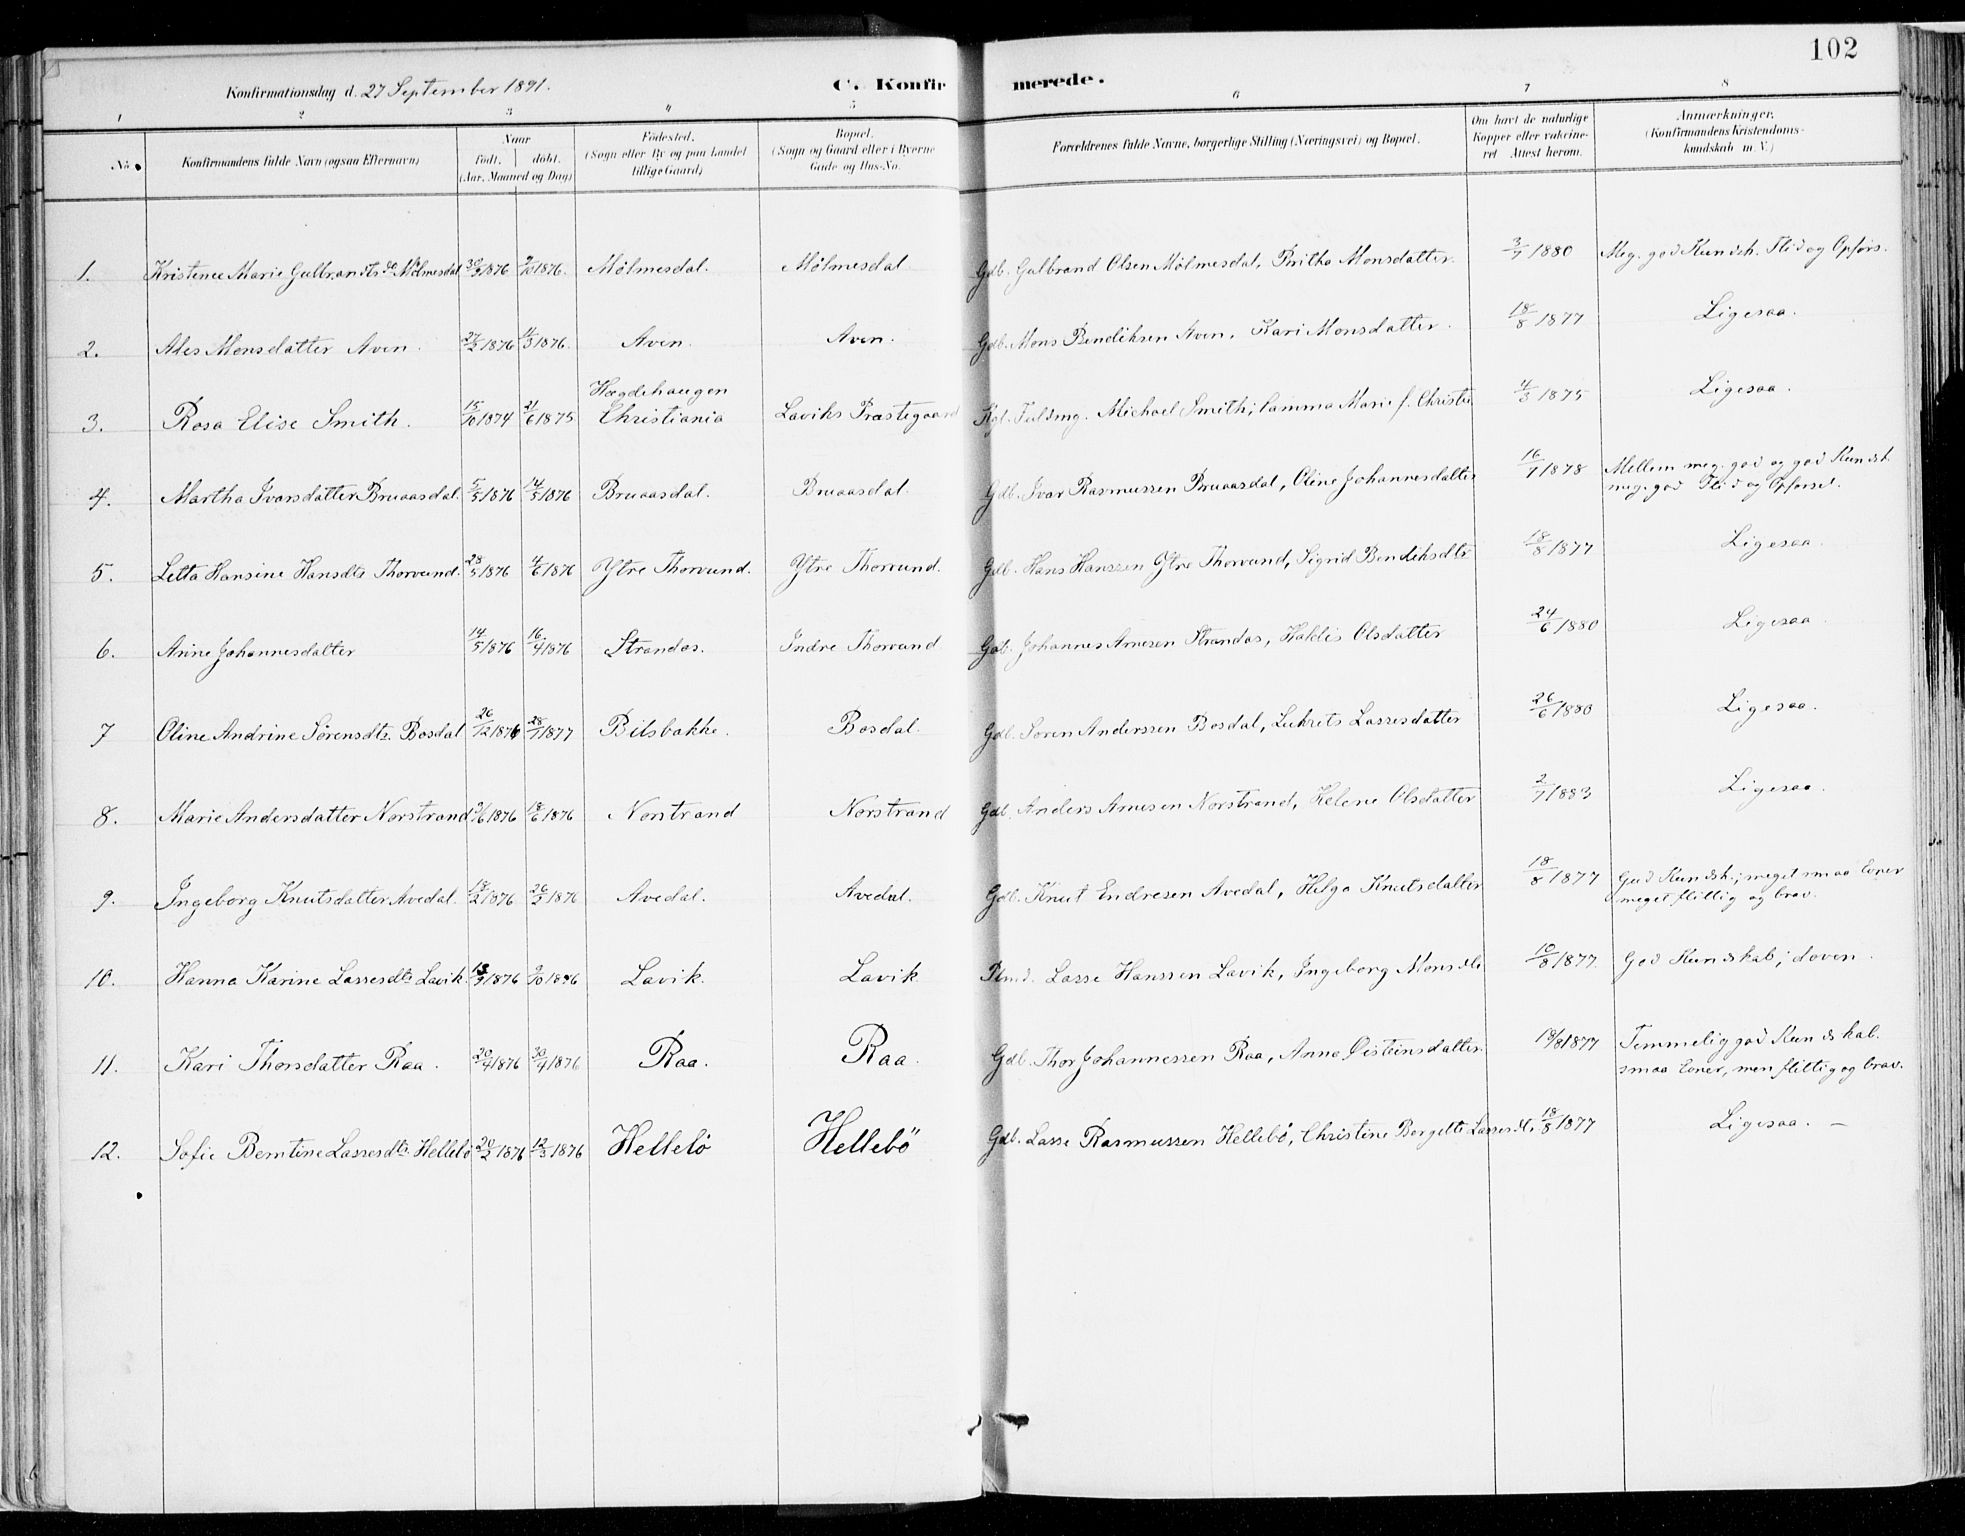 102
Konfirmationsdag d. 27 September 1891.
C. Konfirmerede.
1 2 3 4 5 6 7 8
No.
Konfirmandens fulde Navn (ogsaa Efternavn)
Naar
født. døbt.
(Aar, Maaned og Dag)
Fødested.
(Sogn eller By og paa Landet
tillige Gaard)
Bopæl.
(Sogn og Gaard eller i Byerne
Gade og Hus-No.
Forældrenes fulde Navne, borgerlige Stilling (Næringsvei) og Bopæl.
Om havt de naturlige
Kopper eller vakcine-
ret Attest herom.
Anmærkninger.
(Konfirmandens Kristendoms-
kundskab m. V.)
1. Kristence Marie Gulbrandsdr. Mølmesdal 30/9 1876 9/10 1876. Mølmesdal. Mølmesdal Gdb. Gulbrand Olsen Mølmesdal, Britha Monsdatter. 3/7 1880 Meg. god Kundsk. Flid og Opførs.
2. Ales Monsdatter Aven. 27/2 1876 11/3 1876. Aven. Aven. Gdb. Mons Bendiksen Aven, Kari Monsdatter. 18/8 1877 Ligesaa.
Hægdehaugen
3. Rosa Elise Smith. 15/10 1874 21/6 1875 Christiania Laviks Præstegaard Kgl. Fuldmg. Michael Smith; Camma Marie f. Christie 4/3 1875 Ligesaa.
4. Martha Ivarsdatter Bruaasdal. 5/5 1876 14/5 1876 Bruaasdal. Bruaasdal Gdb. Ivar Rasmussen Bruaasdal, Oline Johannesdatter 16/7 1878 Mellem meg. god og god Kundsk.
meg. god Flid og Opførsel.
5. Letta Hansine Hansdtr Thorvund. 28/5 1876 4/6 1876 Ytre Thorvund. Ytre Thorvund. Gdb. Hans Hanssen Ytre Thorvund, Sigrid Bendiksdtr 18/8 1877 Ligesaa.
6. Anine Johannesdatter 14/5 1876 16/4 1876 Strandos. Indre Thorvund Gdb. Johannes Arnesen Strandos, Haldis Olsdatter 24/6 1880 Ligesaa.
7 Oline Andrine Sørensdtr. Bosdal 26/12 1876 28/1 1877 Bilsbakke. Bosdal. Gdb. Søren Anderssen Bosdal, Lukrets Lassesdatter 26/6 1880 Ligesaa.
8. Marie Andersdatter Norstrand /6 1876 18/6 1876 Norstrand Norstrand Gdb. Anders Arnesen Norstrand, Helene Olsdatter 2/7 1883 Ligesaa.
9. Ingeborg Knutsdatter Avedal. 18/2 1876 26/3 1876 Avedal. Avedal. Gdb. Knut Endresen Avedal, Helga Knutsdatter 18/8 1877 God Kundsk.; meget smaa Evner
meget flittig og brav.
10. Hanna Karine Lassesdtr Lavik. 18/9 1876 9/10 1876 Lavik. Lavik Plmd. Lasse Hanssen Lavik, Ingeborg Monsdtr 10/8 1877 God Kundskab; doven.
11. Kari Thorsdatter Raa. 20/4 1876 30/4 1876 Raa. Raa. Gdb. Thor Johannessen Raa, Anna Øisteinsdatter. 18/8 1877 Temmelig god Kundskab.
smaa Evner, men flittig og brav.
12. Sofie Berntine Lassesdtr Hellebø 20/2 1876 12/3 1876 Hellebø Hellebø Gdb. Lasse Rasmussen Hellebø, Christine Bergette Lassesdtr 18/8 1877 Ligesaa. —